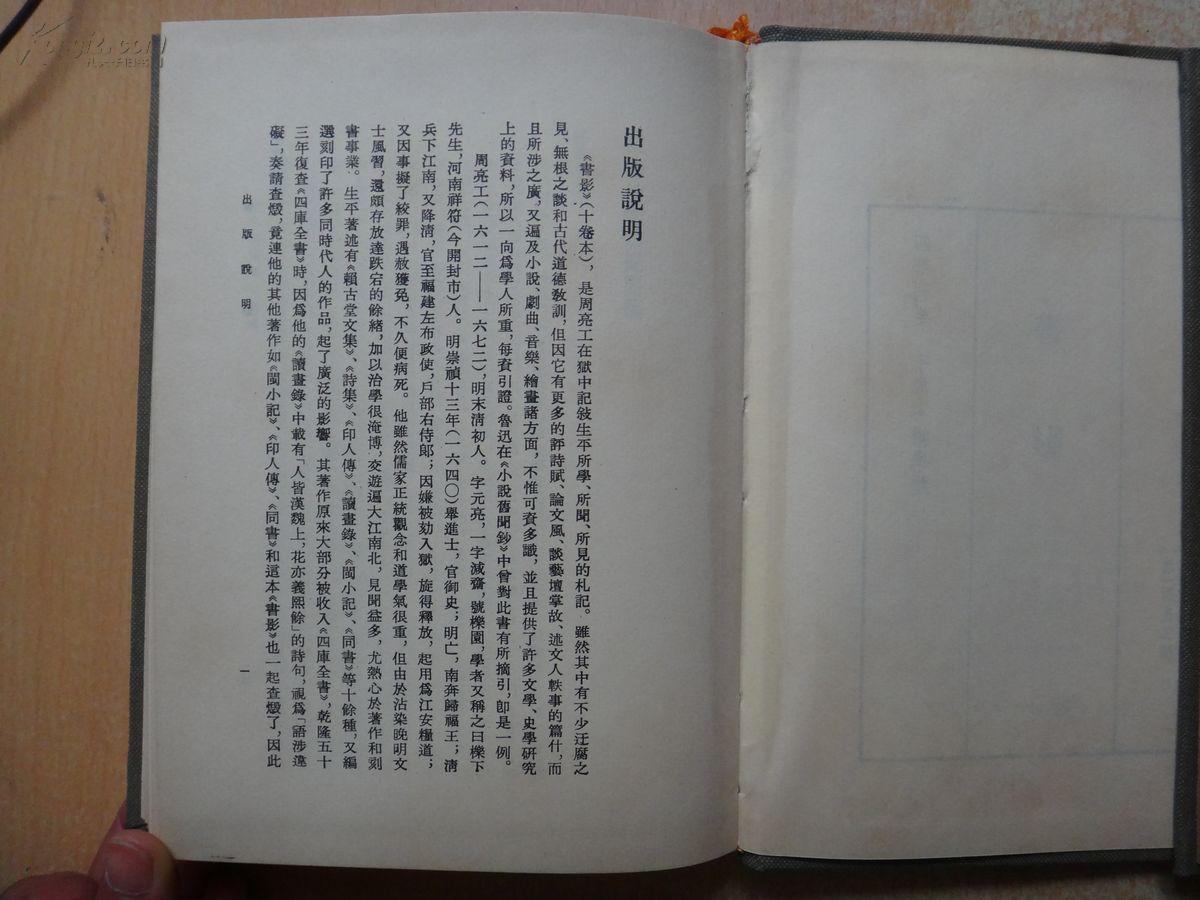 出版說明
《書影》(十卷本),是周亮工在獄中記敍生平所學、所聞、所見的札記。雖然其中有不少迂腐之
見、無根之談和古代道德敎訓,但因它有更多的評詩賦、論文風、談藝壇掌故、述文人軼事的篇什,而
且所涉之廣,又遍及小說、劇曲、音樂、繪畫諸方面,不惟可資多識,並且提供了許多文學、史學硏究
上的資料,所以一向爲學人所重,每資引證。魯迅在《小說舊聞鈔》中曾對此書有所摘引,卽是一例。
周亮工(一六一二——一六七二),明末淸初人。字元亮,一字減齋,號櫟園,學者又稱之曰櫟下
先生,河南祥符(今開封市)人。明崇禎十三年(一六四〇)舉進士,官御史;明亡,南奔歸福王;淸
兵下江南,又降淸,官至福建左布政使,戶部右侍郞;因嫌被劾入獄,旋得釋放,起用爲江安糧道;
又因事擬了絞罪,遇赦獲免,不久便病死。他雖然儒家正統觀念和道學氣很重,但由於沾染晚明文
士風習,還頗存放達跌宕的餘緒,加以治學很淹博,交遊遍大江南北,見聞益多,尤熱心於著作和刻
書事業。生平著述有《賴古堂文集》、《詩集》、《印人傳》、《讀畫錄》、《閩小記》、《同書》等十餘種,又編
選刻印了許多同時代人的作品,起了廣泛的影響。其著作原來大部分被收入《四庫全書》,乾隆五十
三年復查《四庫全書》時,因爲他的《讀畫錄》中載有「人皆漢魏上,花亦義熙餘」的詩句,視爲「語涉違
礙」,奏請查燬,竟連他的其他著作如《閩小記》、《印人傳》、《同書》和這本《書影》也一起查燬了,因此
出版說明
一